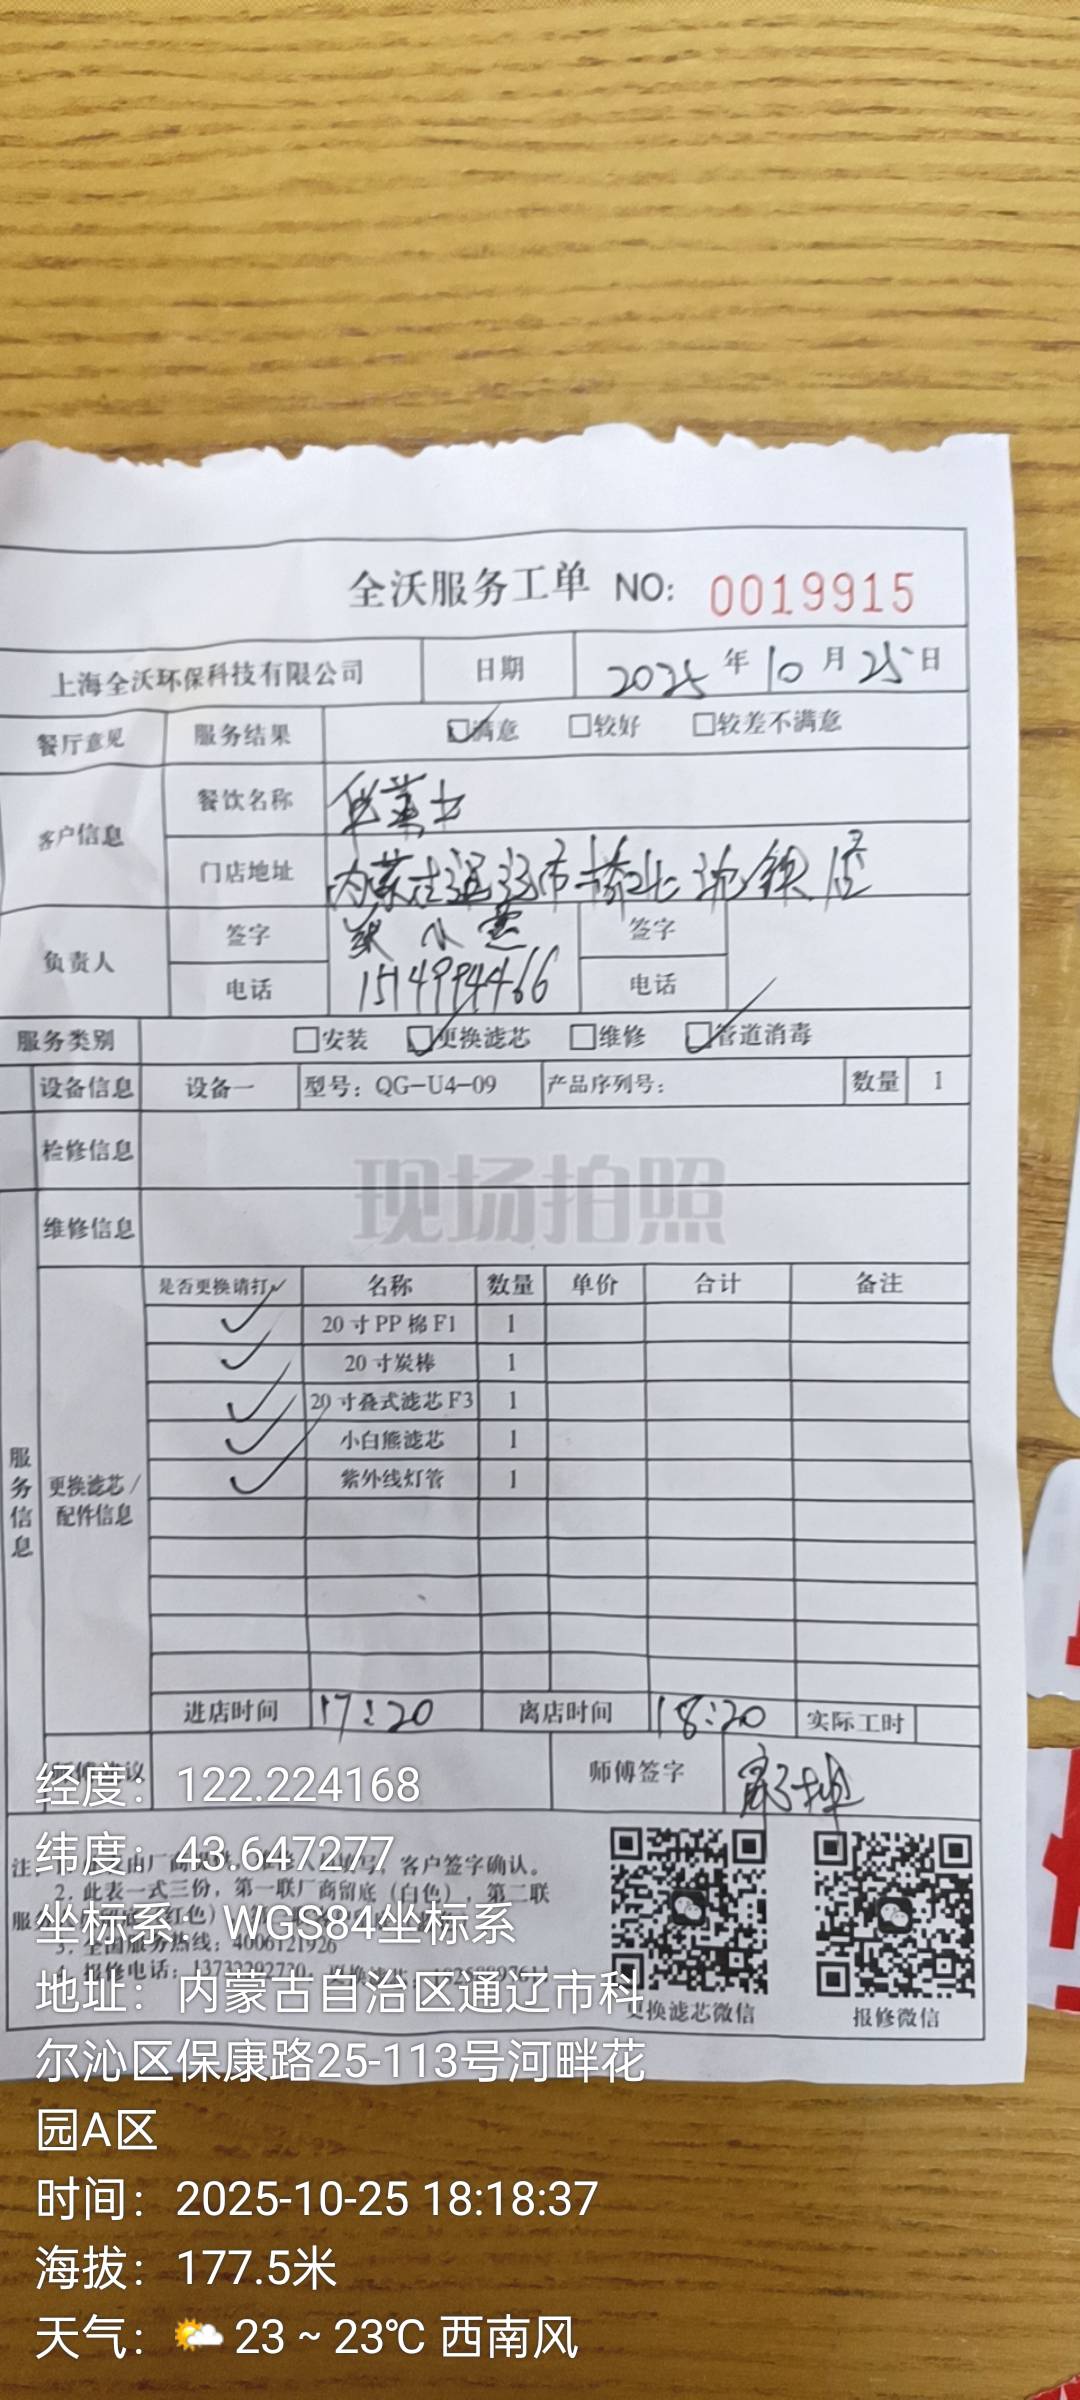 全沃服务工单 NO: 0019915
上海全沃环保科技有限公司 日期 2025年10月25日
餐厅意见 服务结果 ☑满意 □较好 □较差不满意
客户信息 餐饮名称 华莱士
门店地址 内蒙古通辽市
负责人 签字 电话 签字 电话
服务类别 □安装 ☑更换滤芯 □维修 ☑管道消毒
设备信息 设备一 型号: QG-U4-09 产品序列号: 数量 1
检修信息
现场拍照
维修信息
服务信息
更换滤芯/配件信息
是否更换请打✓ 名称 数量 单价 合计 备注
✓ 20寸PP棉F1 1
✓ 20寸炭棒 1
✓ 20寸叠式滤芯F3 1
✓ 小白熊滤芯 1
✓ 紫外线灯管 1
进店时间 17:20 离店时间 18:20 实际工时
师傅签字
客户签字确认。
2. 此表一式三份，第一联厂商留底（白色），第二联
3. 全国服务热线: 4006121926
更换滤芯微信 报修微信
经度: 122.224168
纬度: 43.647277
坐标系: WGS84坐标系
地址: 内蒙古自治区通辽市科
尔沁区保康路25-113号河畔花
园A区
时间: 2025-10-25 18:18:37
海拔: 177.5米
天气: 23 ~ 23℃ 西南风